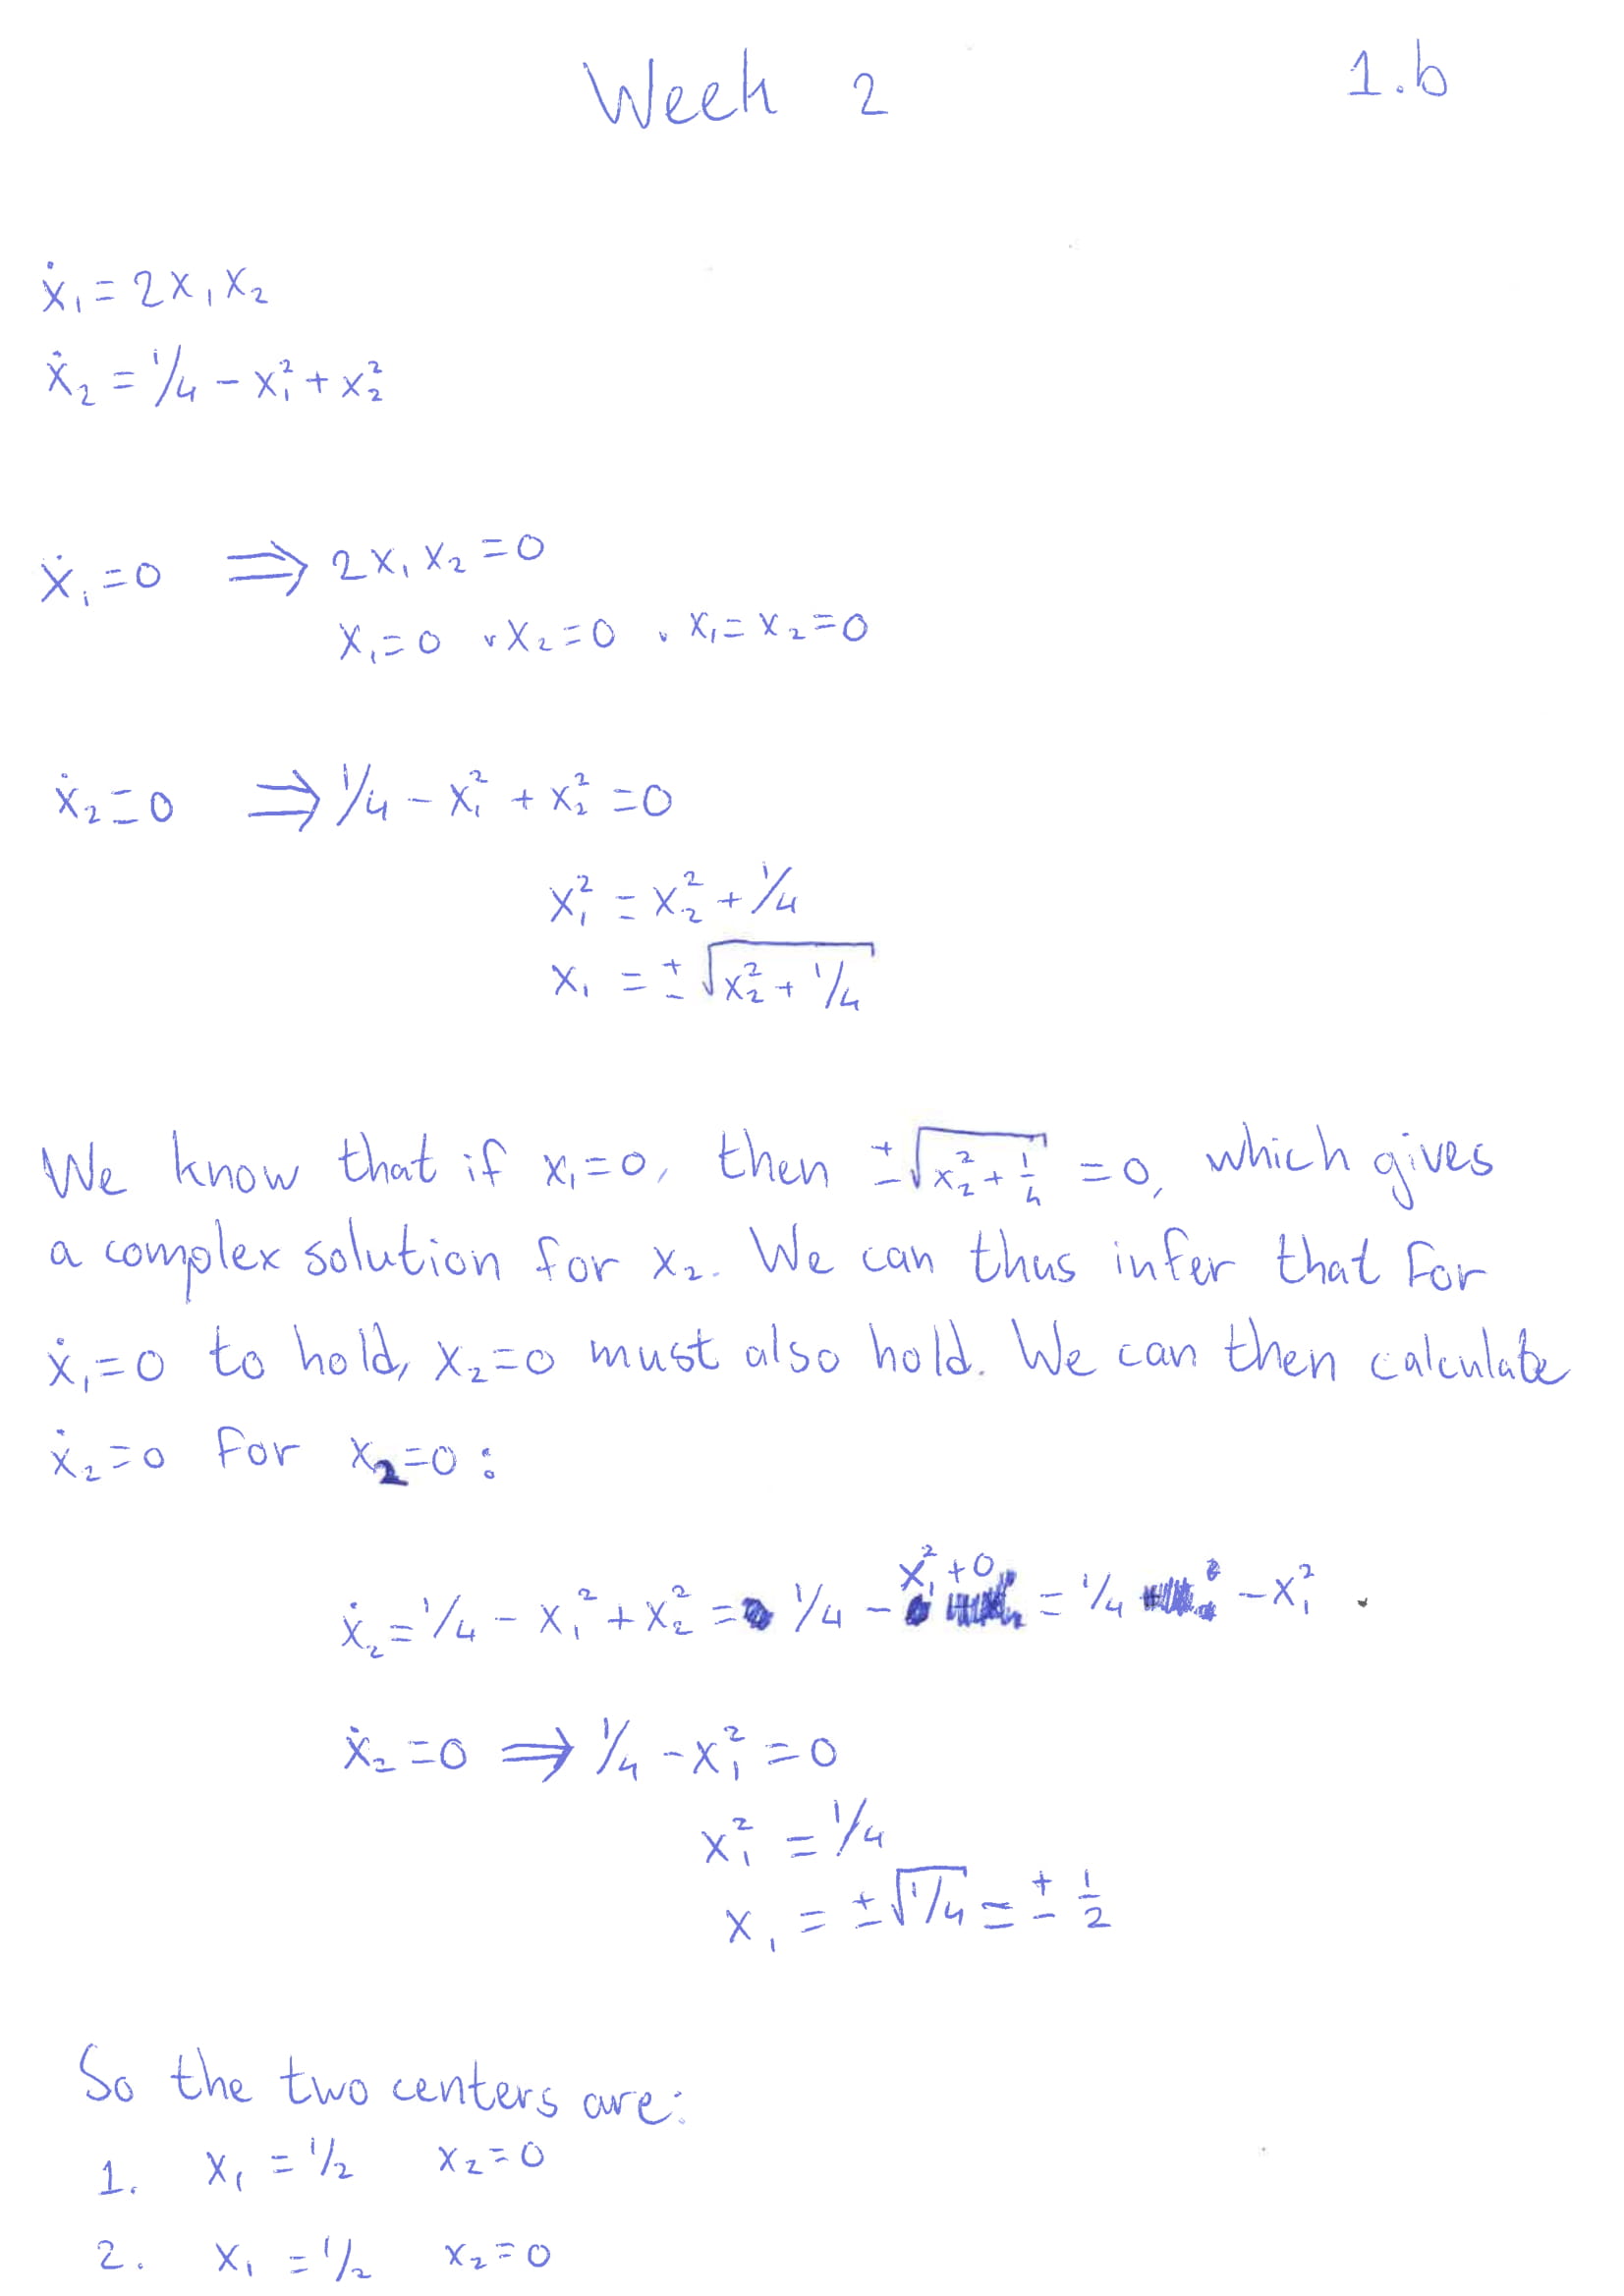 Week 2 1.b
ẋ₁ = 2x₁x₂
ẋ₂ = 1/4 - x₁² + x₂²
ẋ₁ = 0 ⟹ 2x₁x₂ = 0
x₁ = 0 ∨ x₂ = 0 ∨ x₁ = x₂ = 0
ẋ₂ = 0 ⟹ 1/4 - x₁² + x₂² = 0
x₁² = x₂² + 1/4
x₁ = ±√(x₂² + 1/4)
We know that if x₁=0, then ±√(x₂² + 1/4) = 0, which gives
a complex solution for x₂. We can thus infer that for
ẋ₁=0 to hold, x₂=0 must also hold. We can then calculate
ẋ₂=0 for x₂=0:
ẋ₂ = 1/4 - x₁² + x₂² = 1/4 - x₁² + 0 = 1/4 - x₁².
ẋ₂ = 0 ⟹ 1/4 - x₁² = 0
x₁² = 1/4
x₁ = ±√(1/4) = ± 1/2
So the two centers are:
1. x₁ = 1/2 x₂ = 0
2. x₁ = 1/2 x₂ = 0